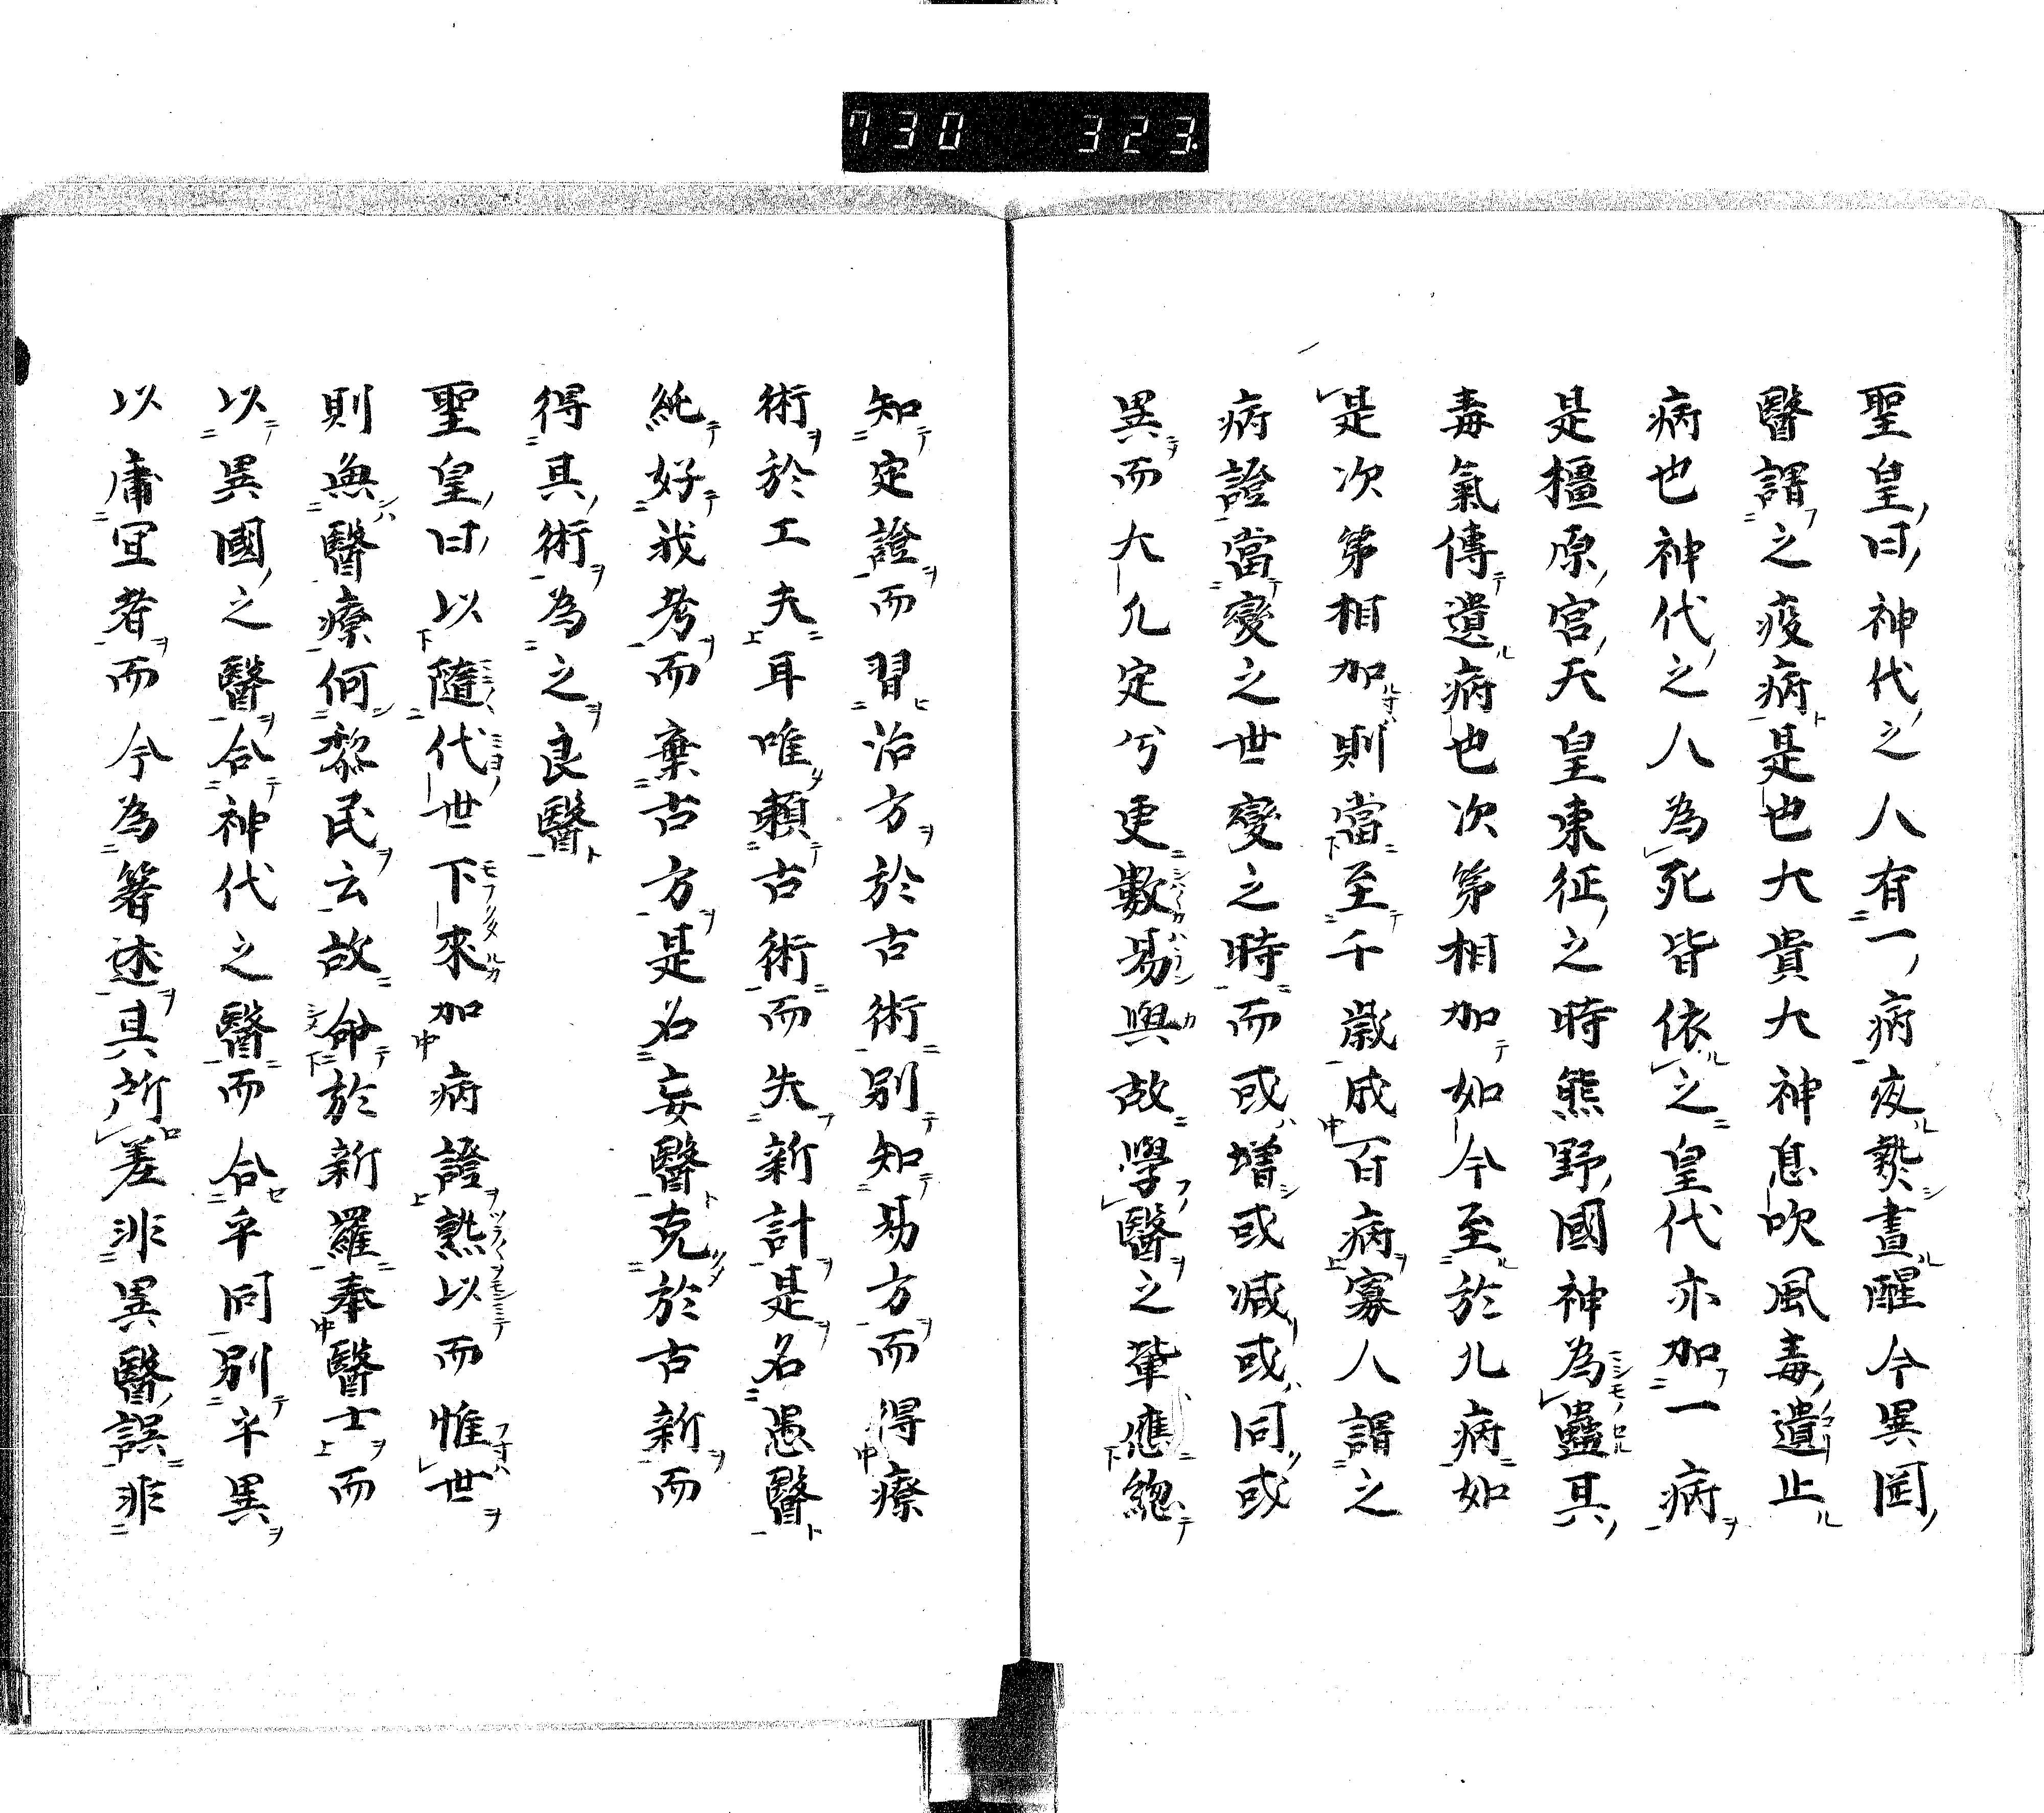 730 323
聖皇曰神代之人有一病夜𤍠晝醒今異国
醫謂之疫病是也大貴大神息吹風毒遺止
病也神代之人為死皆依之皇代亦加一病
是橿原宮天皇東征之時熊野國神為蠱其
毒氣傳遺病也次第相加如今至於九病如
是次第相加則當至千歲成百病寡人謂之
病證當變之世變之時而或增或減或同或
異而大凢定兮更數易與故學醫之輩應總
知定證而習治方於古術別知易方而得療
術於工夫耳唯賴古術而失新計是名愚醫
純好我考而棄古方是名妄醫克於古新而
得其術為之良醫
聖皇曰以隨代世下來加病證熟以而惟世
則無醫療何黎民云故命於新羅奉醫士而
以異國之醫合神代之醫而合乎同別乎異
以庸宜者而今為箸述其所差非異醫誤非